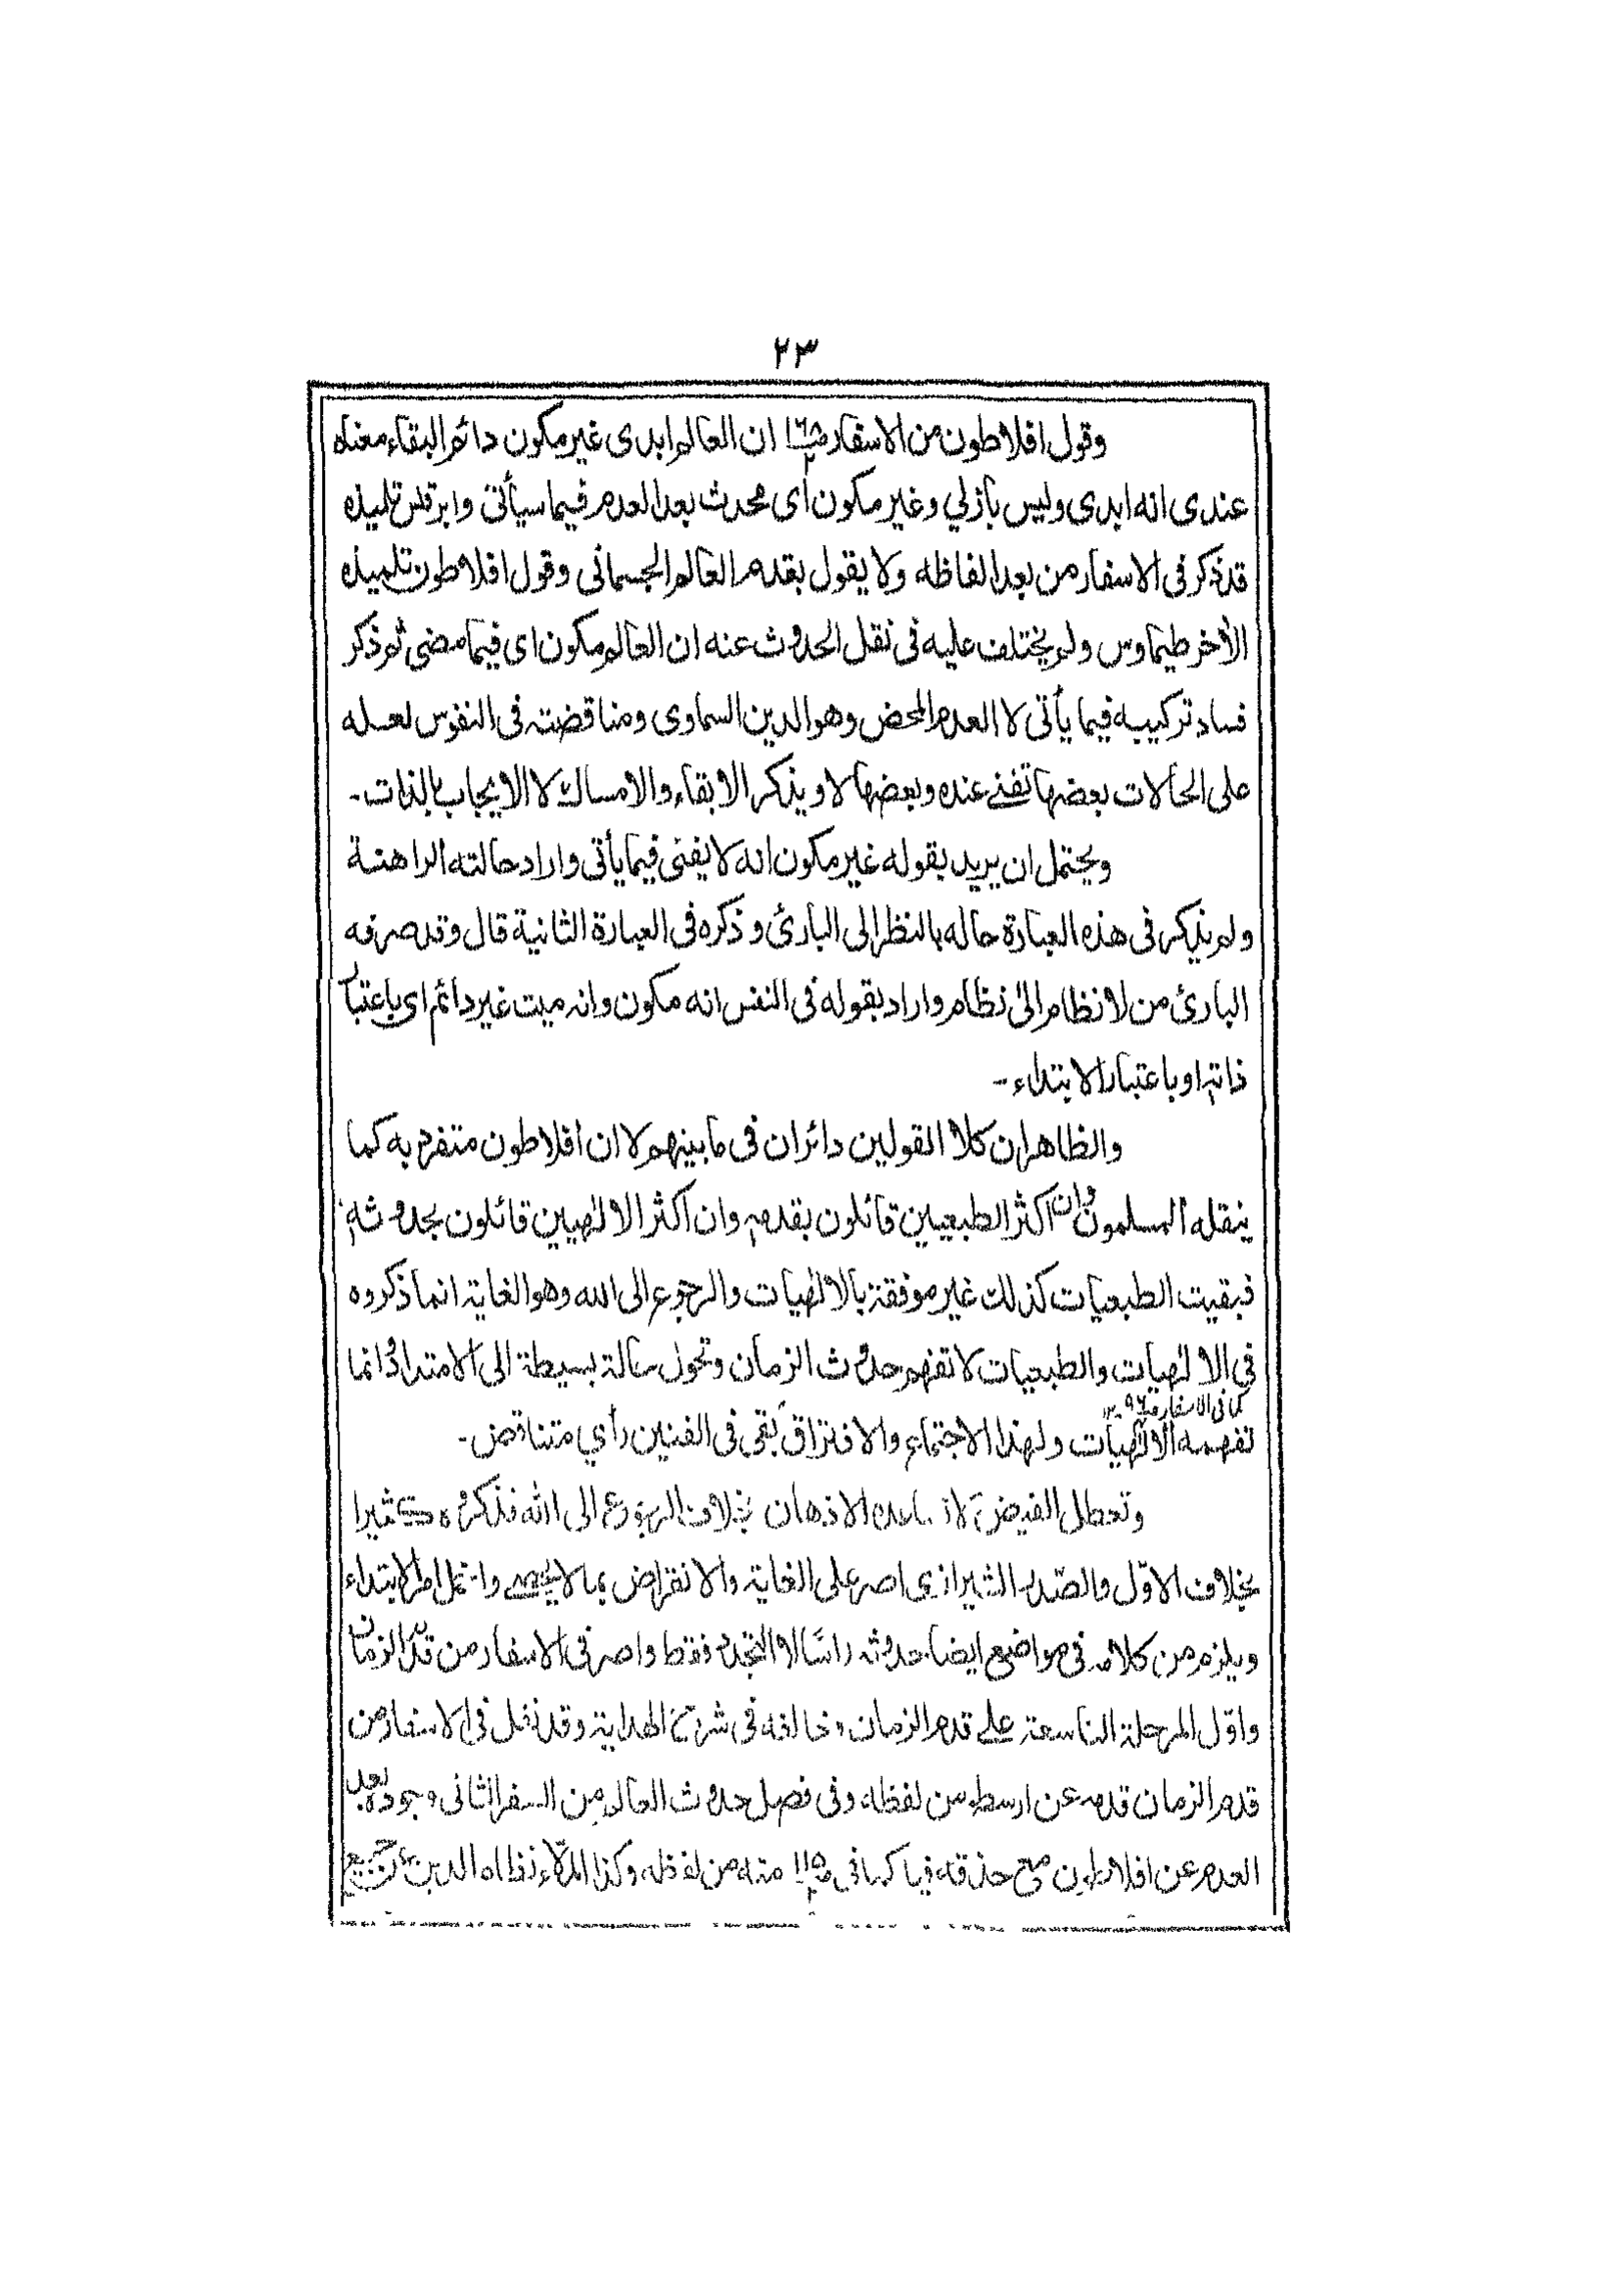 ٢٣
وقول افلاطون من الاسفار ان العالم ابدى غير مكون دائم البقاء معناه
عندى انه ابدى وليس بأزلي وغير مكون أى محدث بعد العدم فيما سيأتى وابرقلس تلميذه
قد ذكر فى الاسفار من بعد الفاظه ولا يقول بقدم العالم الجسمانى وقول افلاطون تلميذه
الأخر طيماوس ولم يختلف عليه فى نقل الحدوث عنه ان العالم مكون اى فيما مضى ثم ذكر
فساد تركيبه فيما يأتى لا العدم المحض وهو الدين السماوى ومناقضته فى النفوس لعله
على الحالات بعضها تفنى عنده وبعضها لا ويذكر الابقاء والامساك لا الايجاب بالذات-
ويحتمل ان يريد بقوله غير مكون انه لا يفنى فيما يأتى واراد حالته الراهنة
ولم يذكر فى هذه العبارة حاله بالنظر الى البارئ وذكره فى العبارة الثانية قال وقد صرفه
البارئ من لا نظام الى نظام واراد بقوله فى النفس انه مكون وانه ميت غير دائم اى باعتبار
ذاته او باعتبار الابتداء-
والظاهر ان كلا القولين دائران فى ما بينهم لا ان افلاطون متفرد به كما
ينقله المسلمون وان اكثر الطبعيين قائلون بقدمه وان اكثر الالهيين قائلون بحدوثه
فبقيت الطبعيات كذلك غير موفقة بالالهيات والرجوع الى الله وهو الغاية انما ذكروه
فى الالهيات والطبعيات لا تفهم حدوث الزمان وتحول حالة بسيطة الى الامتداد وانما
كما فى الاسفار
تفهمه الالهيات ولهذا الاجتماع والافتراق بقى فى الفنين رأي متناقض-
وتعطل الفيض الاذهان بخلاف الرجوع الى الله فذكروه كثيرا
بخلاف الاول والصدر الشيرازى اصر على الغاية والانقراض بما لا يحصى امر الابتداء
ويلزم من كلامه فى مواضع ايضا حدوثه رأسا لا التجدد فقط واصر فى الاسفار من قدم الزمان
واول المرحلة التاسعة على قدم الزمان وخالفه فى شرح الهداية وقد نقل فى الاسفار من
قدم الزمان قدمه عن ارسطو من لفظه وفى فصل حدوث العالم من السفر الثانى وجوده بعد
العدم عن افلاطون مع حذقه فيها كما فى منه من لفظه وكذا